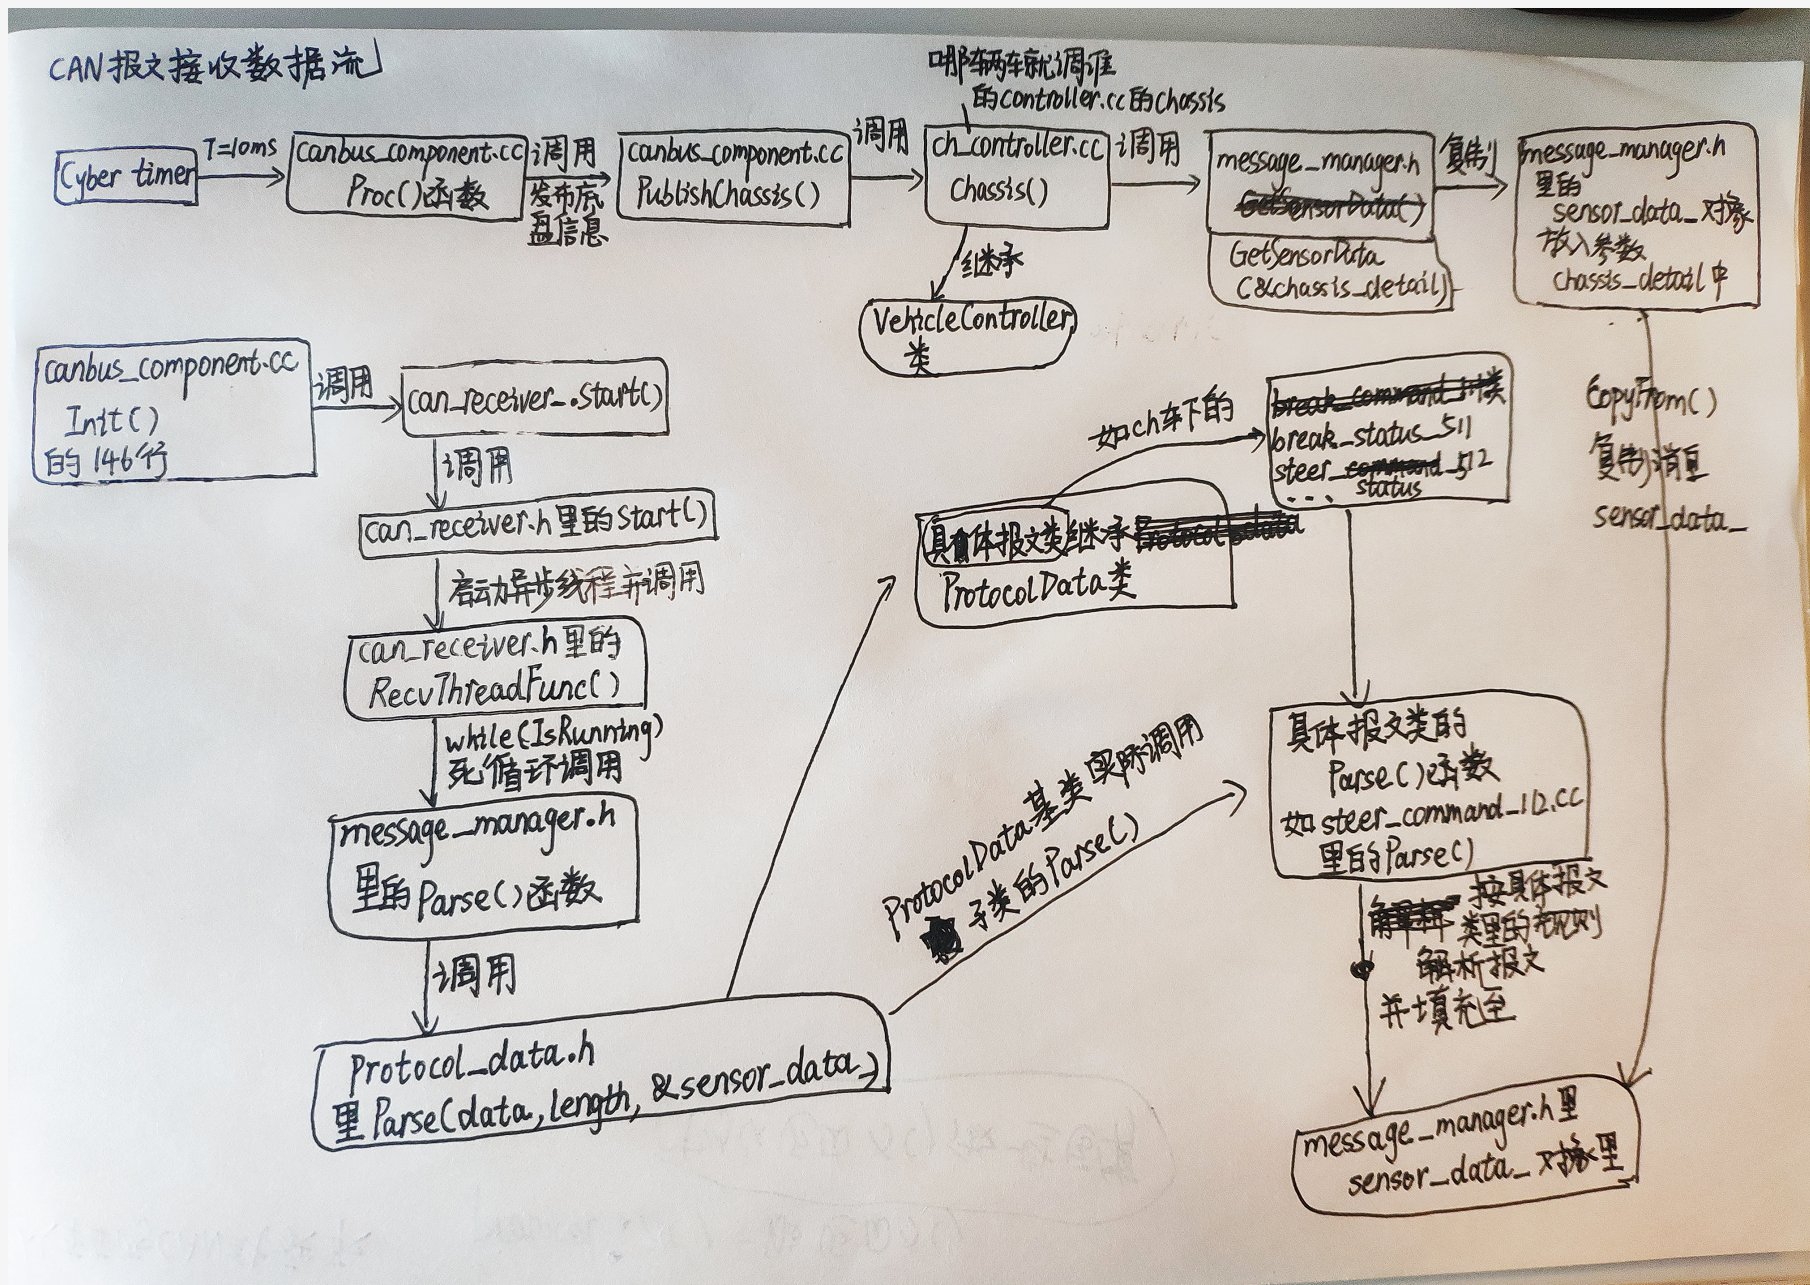 CAN报文接收数据流
哪辆车就调谁
的controller.cc的chassis
Cyber timer
T=10ms
canbus_component.cc
Proc()函数
调用
发布底
盘信息
canbus_component.cc
PublishChassis()
调用
ch_controller.cc
Chassis()
调用
message_manager.h
GetSensorData()
GetSensorData
(&chassis_detail)
复制
message_manager.h
里的
sensor_data_对象
放入参数
chassis_detail中
继承
VehicleController
类
canbus_component.cc
Init()
的146行
调用
can_receiver_.Start()
调用
can_receiver.h里的Start()
启动异步线程并调用
can_receiver.h里的
RecvThreadFunc()
while(IsRunning)
死循环调用
message_manager.h
里的Parse()函数
调用
Protocol_data.h
里Parse(data,length,&sensor_data_)
具体报文类继承
ProtocolData类
如ch车下的
break_status_511
steer_
_512
status
...
ProtocolData基类实际调用
子类的Parse()
具体报文类的
Parse()函数
如steer_command_112.cc
里的Parse()
按具体报文
类里的规则
解析报文
并填充至
CopyFrom()
复制消息
sensor_data_
message_manager.h里
sensor_data_对象里